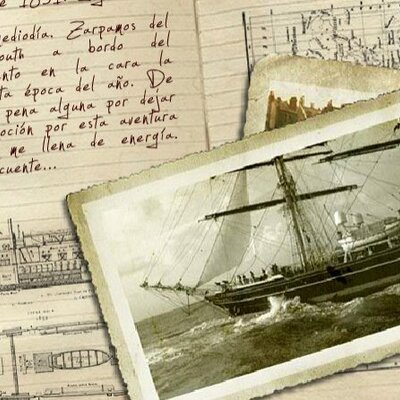 ediodía. Zarpamos del
outh a bordo del
nto en la cara la
ta época del año. De
pena alguna por dejar
oción por esta aventura
me llena de energía.
cuente...